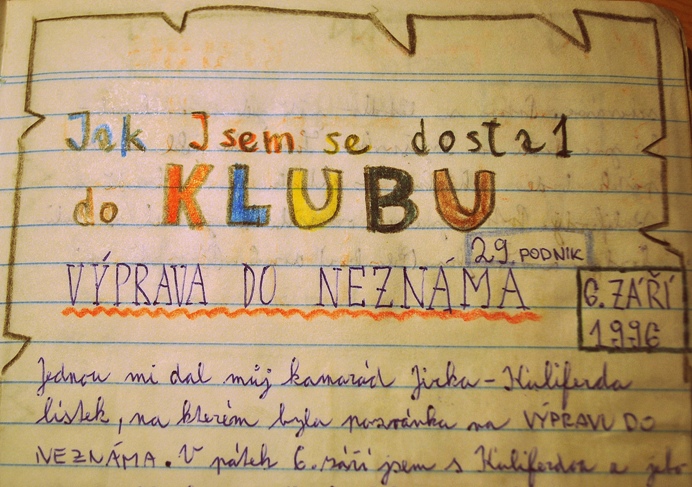 Jak Jsem se dostal
do KLUBU
29. PODNIK
VÝPRAVA DO NEZNÁMA
6. ZÁŘÍ
1996
Jednou mi dal můj kamarád Jirka-Kuliferda
lístek, na kterém byla pozvánka na VÝPRAVU DO
NEZNÁMA. V pátek 6. září jsem s Kuliferdou a jeho